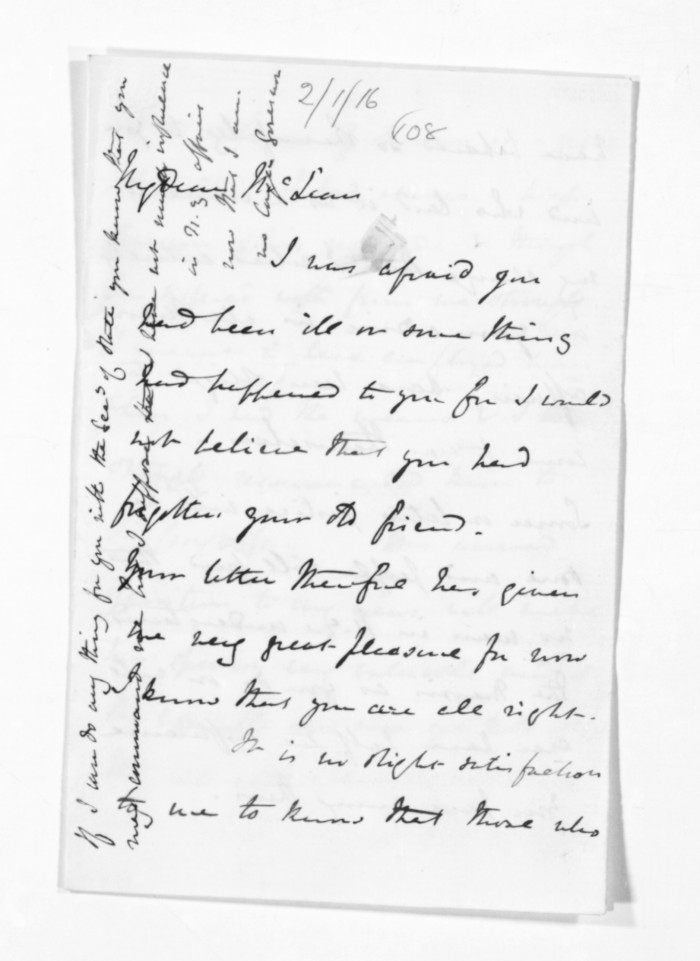 2/1/16
108
My Dear McLean
I was afraid you
had been ill or some thing
had happened to you for I would
not believe that you had
forgotten your old friend.
Your letter therefore has given
me very great pleasure for now
I know that you are all right.
It is no slight satisfaction
to me to know that those who
If I can do any thing for you with the Sec. of State you know that you
may command me but I suppose that I have not much influence
in N.Z affairs
now that I am
no longer Governor